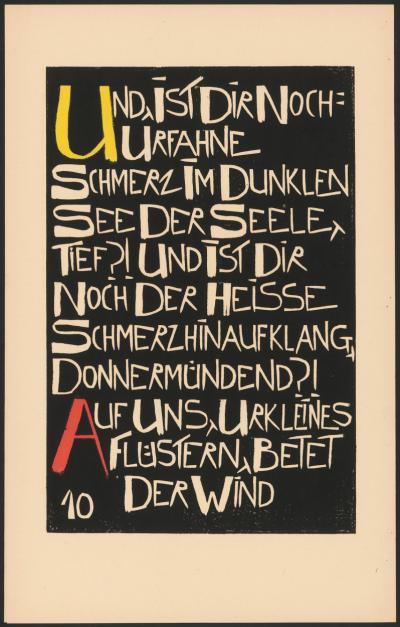 UND, IST DIR NOCH=
URFAHNE
SCHMERZ IM DUNKLEN
SEE DER SEELE,
TIEF?! UND IST DIR
NOCH DER HEISSE
SCHMERZHINAUFKLANG,
DONNERMÜNDEND?!
AUF UNS, URKLEINES
FLÜSTERN, BETET
DER WIND
10